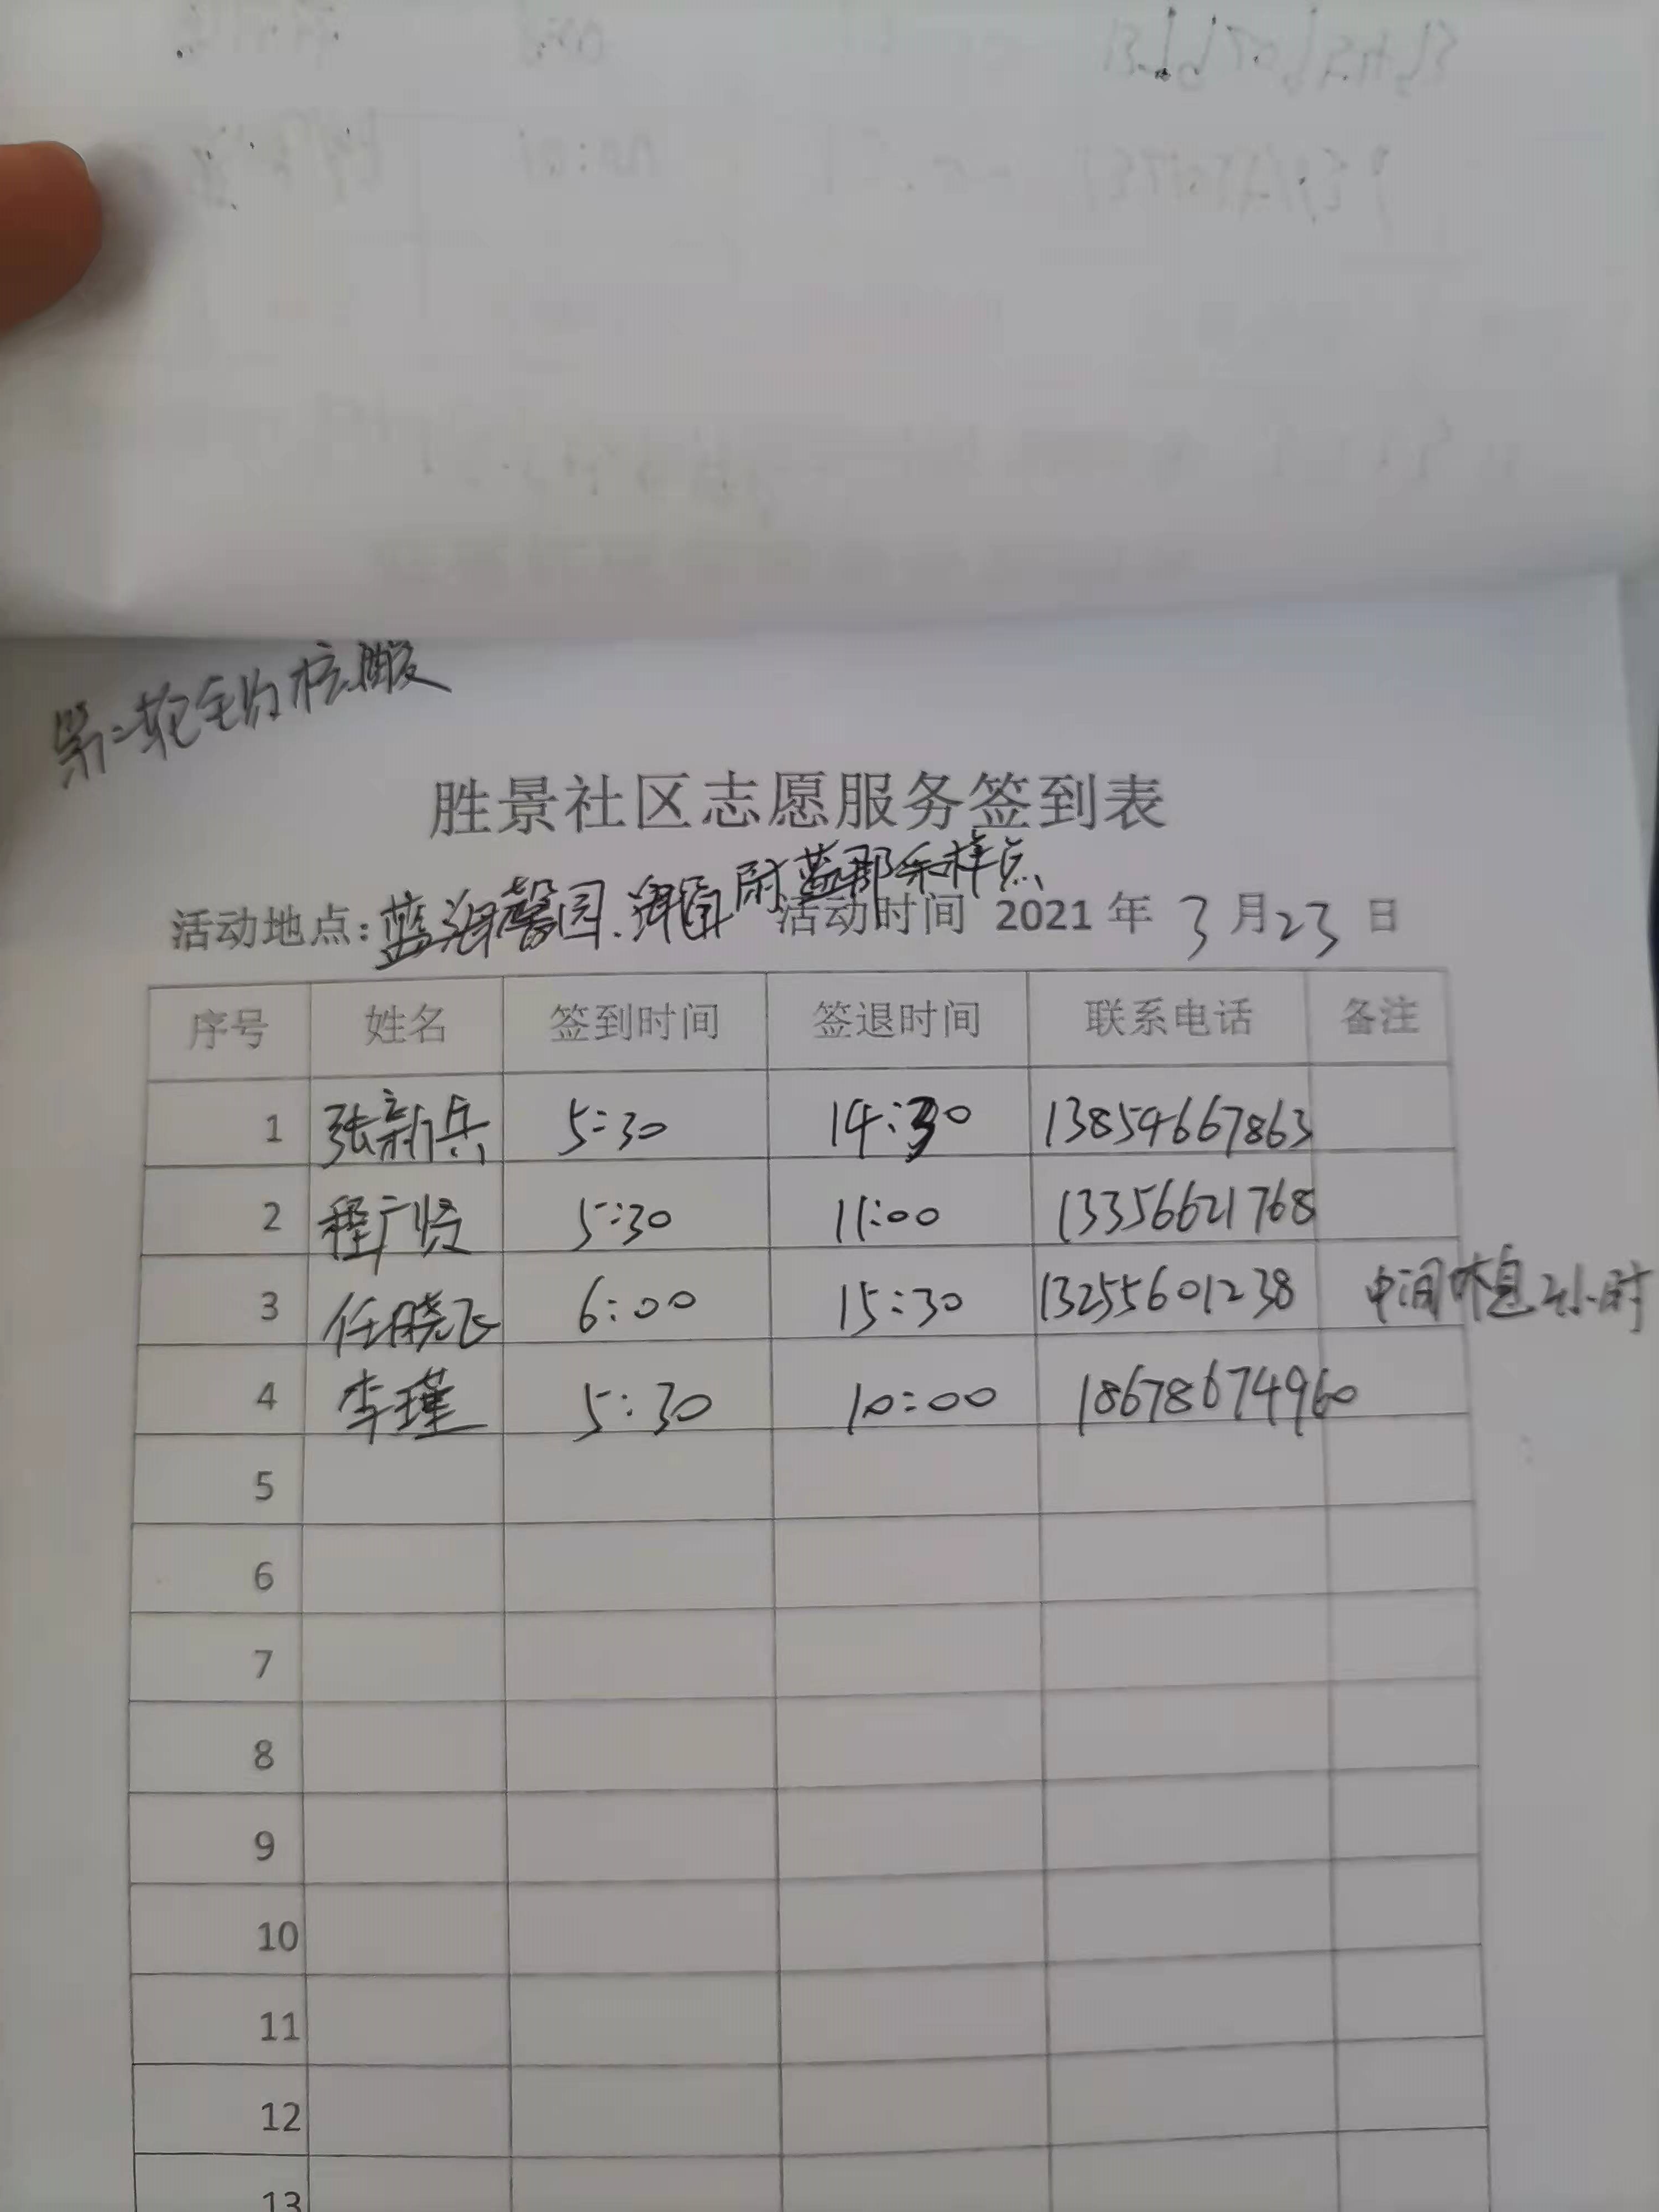 第二轮全员核酸
胜景社区志愿服务签到表
活动地点:蓝海馨园、尉蓝郡采样点 活动时间 2021 年 3 月 23 日
序号 姓名 签到时间 签退时间 联系电话 备注
1 张新兵 5:30 14:30 13854667863
2 程广贤 5:30 11:00 13356621768
3 任晓飞 6:00 15:30 13255601238 中间休息2小时
4 李瑾 5:30 10:00 18678674960
5
6
7
8
9
10
11
12
13